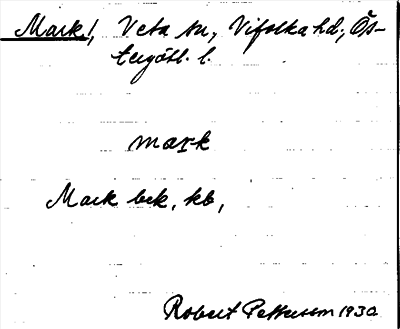 Mark!, Veta sn, Vifolka hd., Ös-
tergötl. l.
mark
Mark bck, kb,
Robert Pettersson 1930